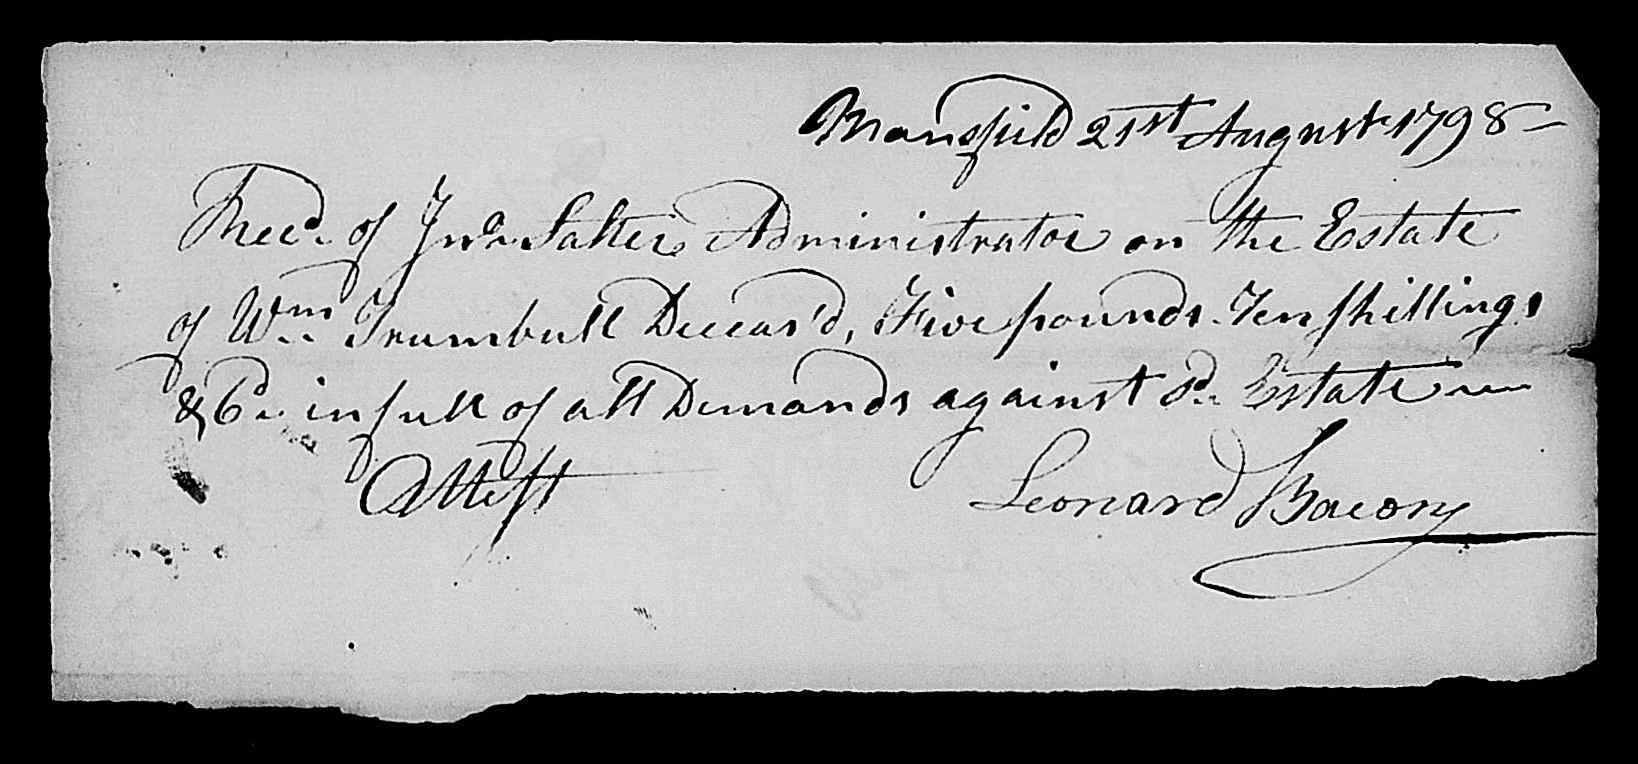 Mansfield 21st August 1798 –
Recd. of Jno. Salter Administrator on the Estate
of Wm. Trumbull Deceas'd, Five pounds Ten shillings
& 6d. in full of all Demands against sd. Estate
Attest Leonard Bacon